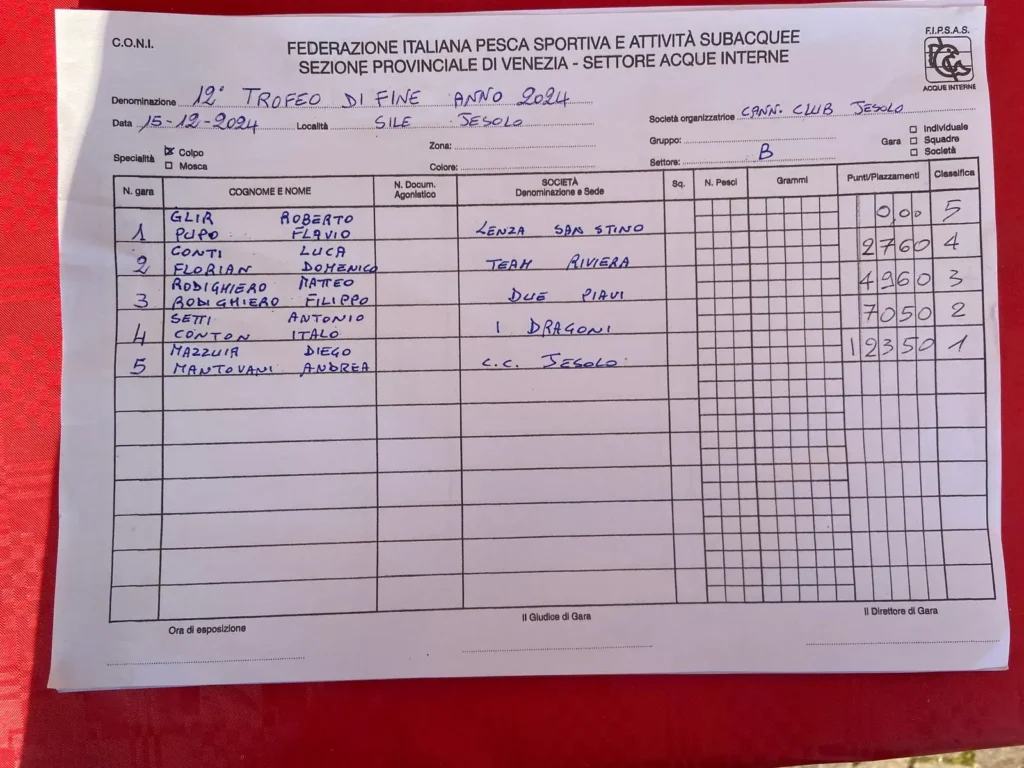 C.O.N.I.
FEDERAZIONE ITALIANA PESCA SPORTIVA E ATTIVITÀ SUBACQUEE
SEZIONE PROVINCIALE DI VENEZIA - SETTORE ACQUE INTERNE
F.I.P.S.A.S.
ACQUE INTERNE
Denominazione 12° TROFEO DI FINE ANNO 2024
Data 15-12-2024 Località SILE JESOLO
Società organizzatrice CANN. CLUB JESOLO
Specialità Colpo
Mosca
Zona:
Colore:
Gruppo:
Settore: B
Gara Individuale
Squadre
Società
N. gara COGNOME E NOME N. Docum. Agonistico SOCIETÀ Denominazione e Sede Sq. N. Pesci Grammi Punti/Piazzamenti Classifica
GLIR ROBERTO
1 PUPO FLAVIO LENZA SAN STINO 0,00 5
CONTI LUCA
2 FLORIAN DOMENICO TEAM RIVIERA 2760 4
RODIGHIERO MATTEO
3 RODIGHIERO FILIPPO DUE PIAVI 4960 3
SETTI ANTONIO
4 CONTON ITALO I DRAGONI 7050 2
MAZZUIA DIEGO
5 MANTOVANI ANDREA C.C. JESOLO 12350 1
Ora di esposizione
Il Giudice di Gara
Il Direttore di Gara